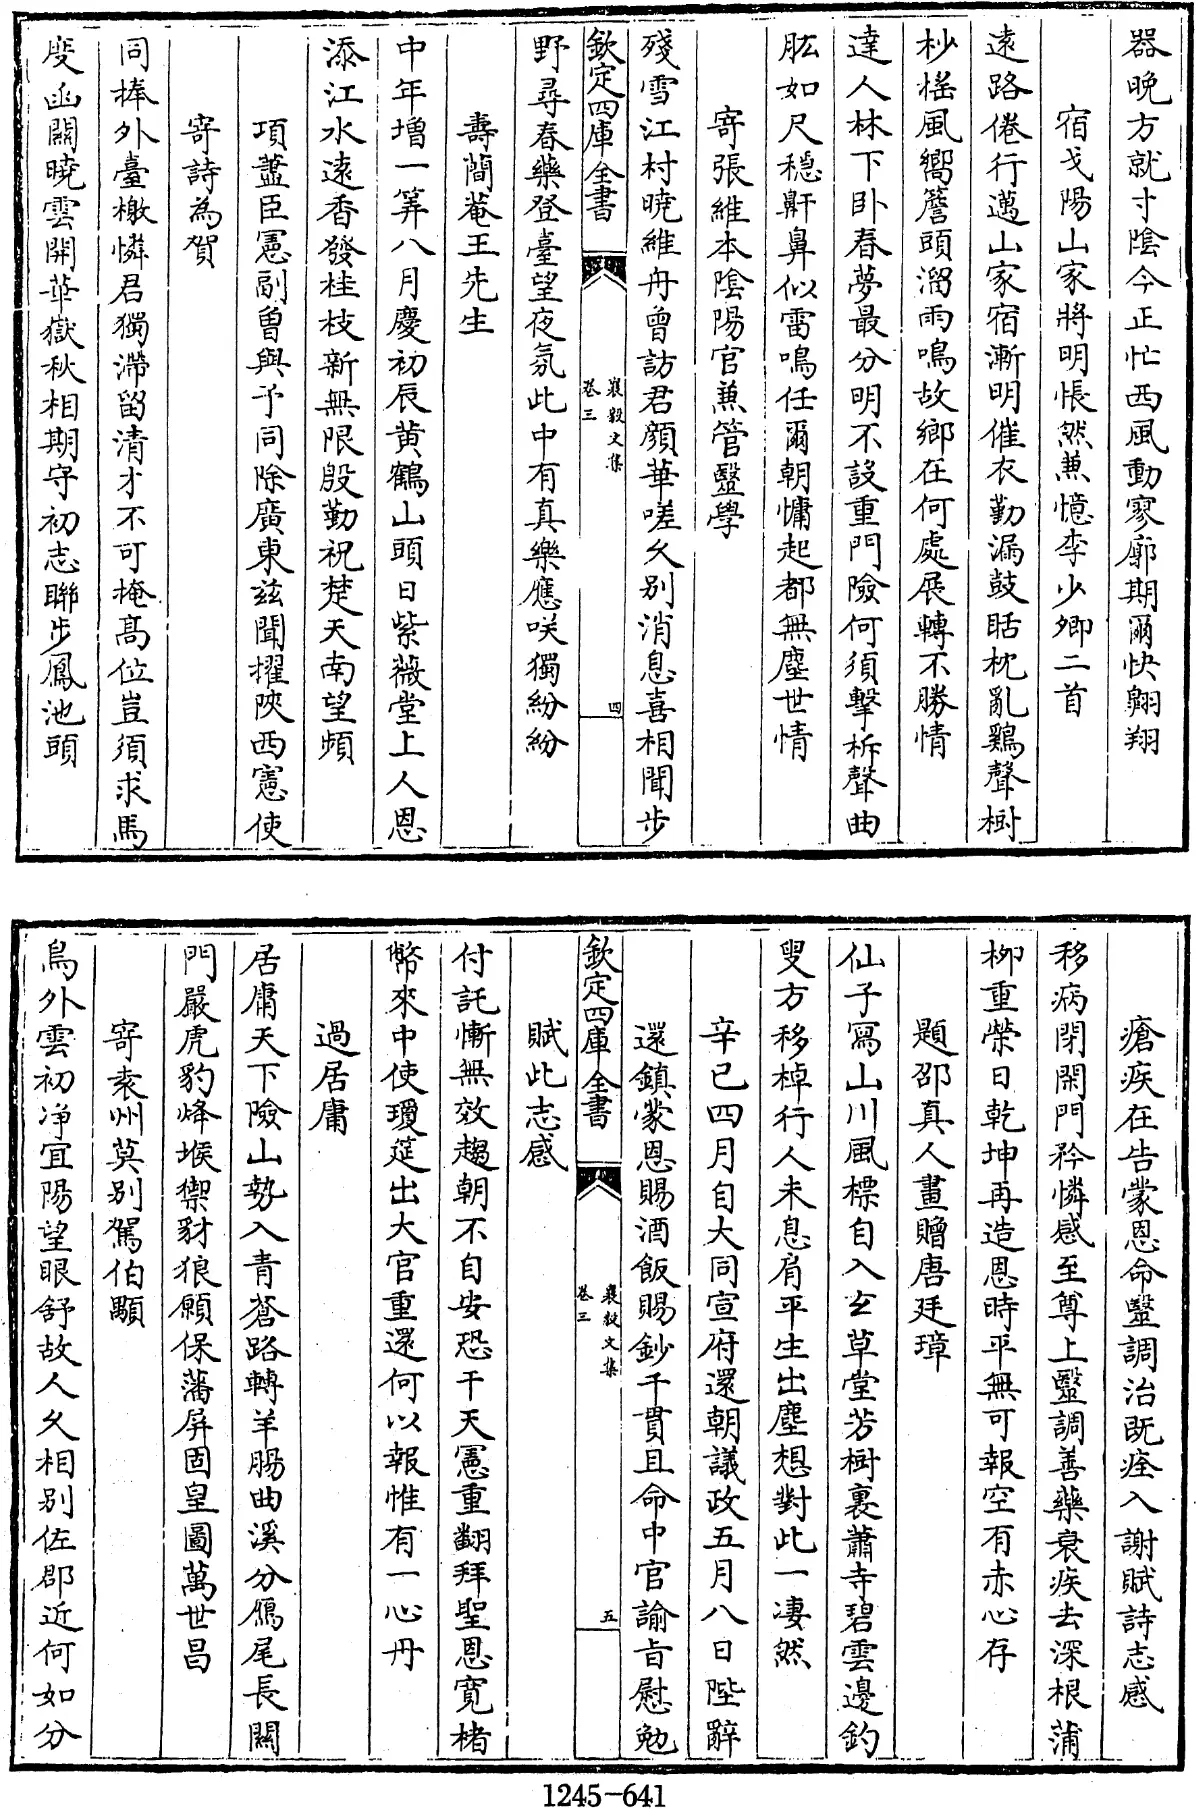 器晚方就寸陰今正忙西風動寥廓期爾快翺翔
宿弋陽山家將明悵然兼憶李少卿二首
遠路倦行邁山家宿漸明催衣勤漏鼓聒枕亂鷄聲樹
杪愮風嚮簷頭溜雨鳴故鄉在何處展轉不勝情
達人林下卧春夢最分明不設重門險何須擊柝聲曲
肱如尺穩鼾鼻似雷鳴任爾朝慵起都無塵世情
寄張維本陰陽官兼管醫學
殘雪江村曉維舟曾訪君顔華嗟久别消息喜相聞步
欽定四庫全書
襄毅文集
卷三
四
野尋春藥登臺望夜氛此中有真樂應咲獨紛紛
壽簡菴王先生
中年増一筭八月慶初辰黄鶴山頭日紫薇堂上人恩
添江水遠香發桂枝新無限殷勤祝楚天南望頻
項藎臣憲副曽與予同除廣東兹聞擢陜西憲使
寄詩為賀
同捧外臺檄憐君獨滯留清才不可掩髙位豈須求馬
度函闗曉雲開華嶽秋相期守初志聯步鳳池頭
瘡疾在告蒙恩命醫調治既痊入謝賦詩志感
移病閉閑門矜憐感至尊上醫調善藥衰疾去深根蒲
柳重榮日乾坤再造恩時平無可報空有赤心存
題邵真人畫贈唐廷璋
仙子寫山川風標自入玄草堂芳樹裏蕭寺碧雲邊釣
叟方移棹行人未息肩平生出塵想對此一凄然
辛已四月自大同宣府還朝議政五月八日陛辭
還鎮蒙恩賜酒飯賜鈔千貫且命中官諭旨慰勉
欽定四庫全書
襄毅文集
卷三
五
賦此志感
付託慚無效趨朝不自安恐干天憲重翻拜聖恩寛楮
幣來中使瓊筵出大官重還何以報惟有一心丹
過居庸
居庸天下險山勢入青蒼路轉羊腸曲溪分鴈尾長闗
門嚴虎豹烽堠禦豺狼願保藩屏固皇圖萬世昌
寄袁州莫别駕伯顒
鳥外雲初净宜陽望眼舒故人久相别佐郡近何如分
1245-641